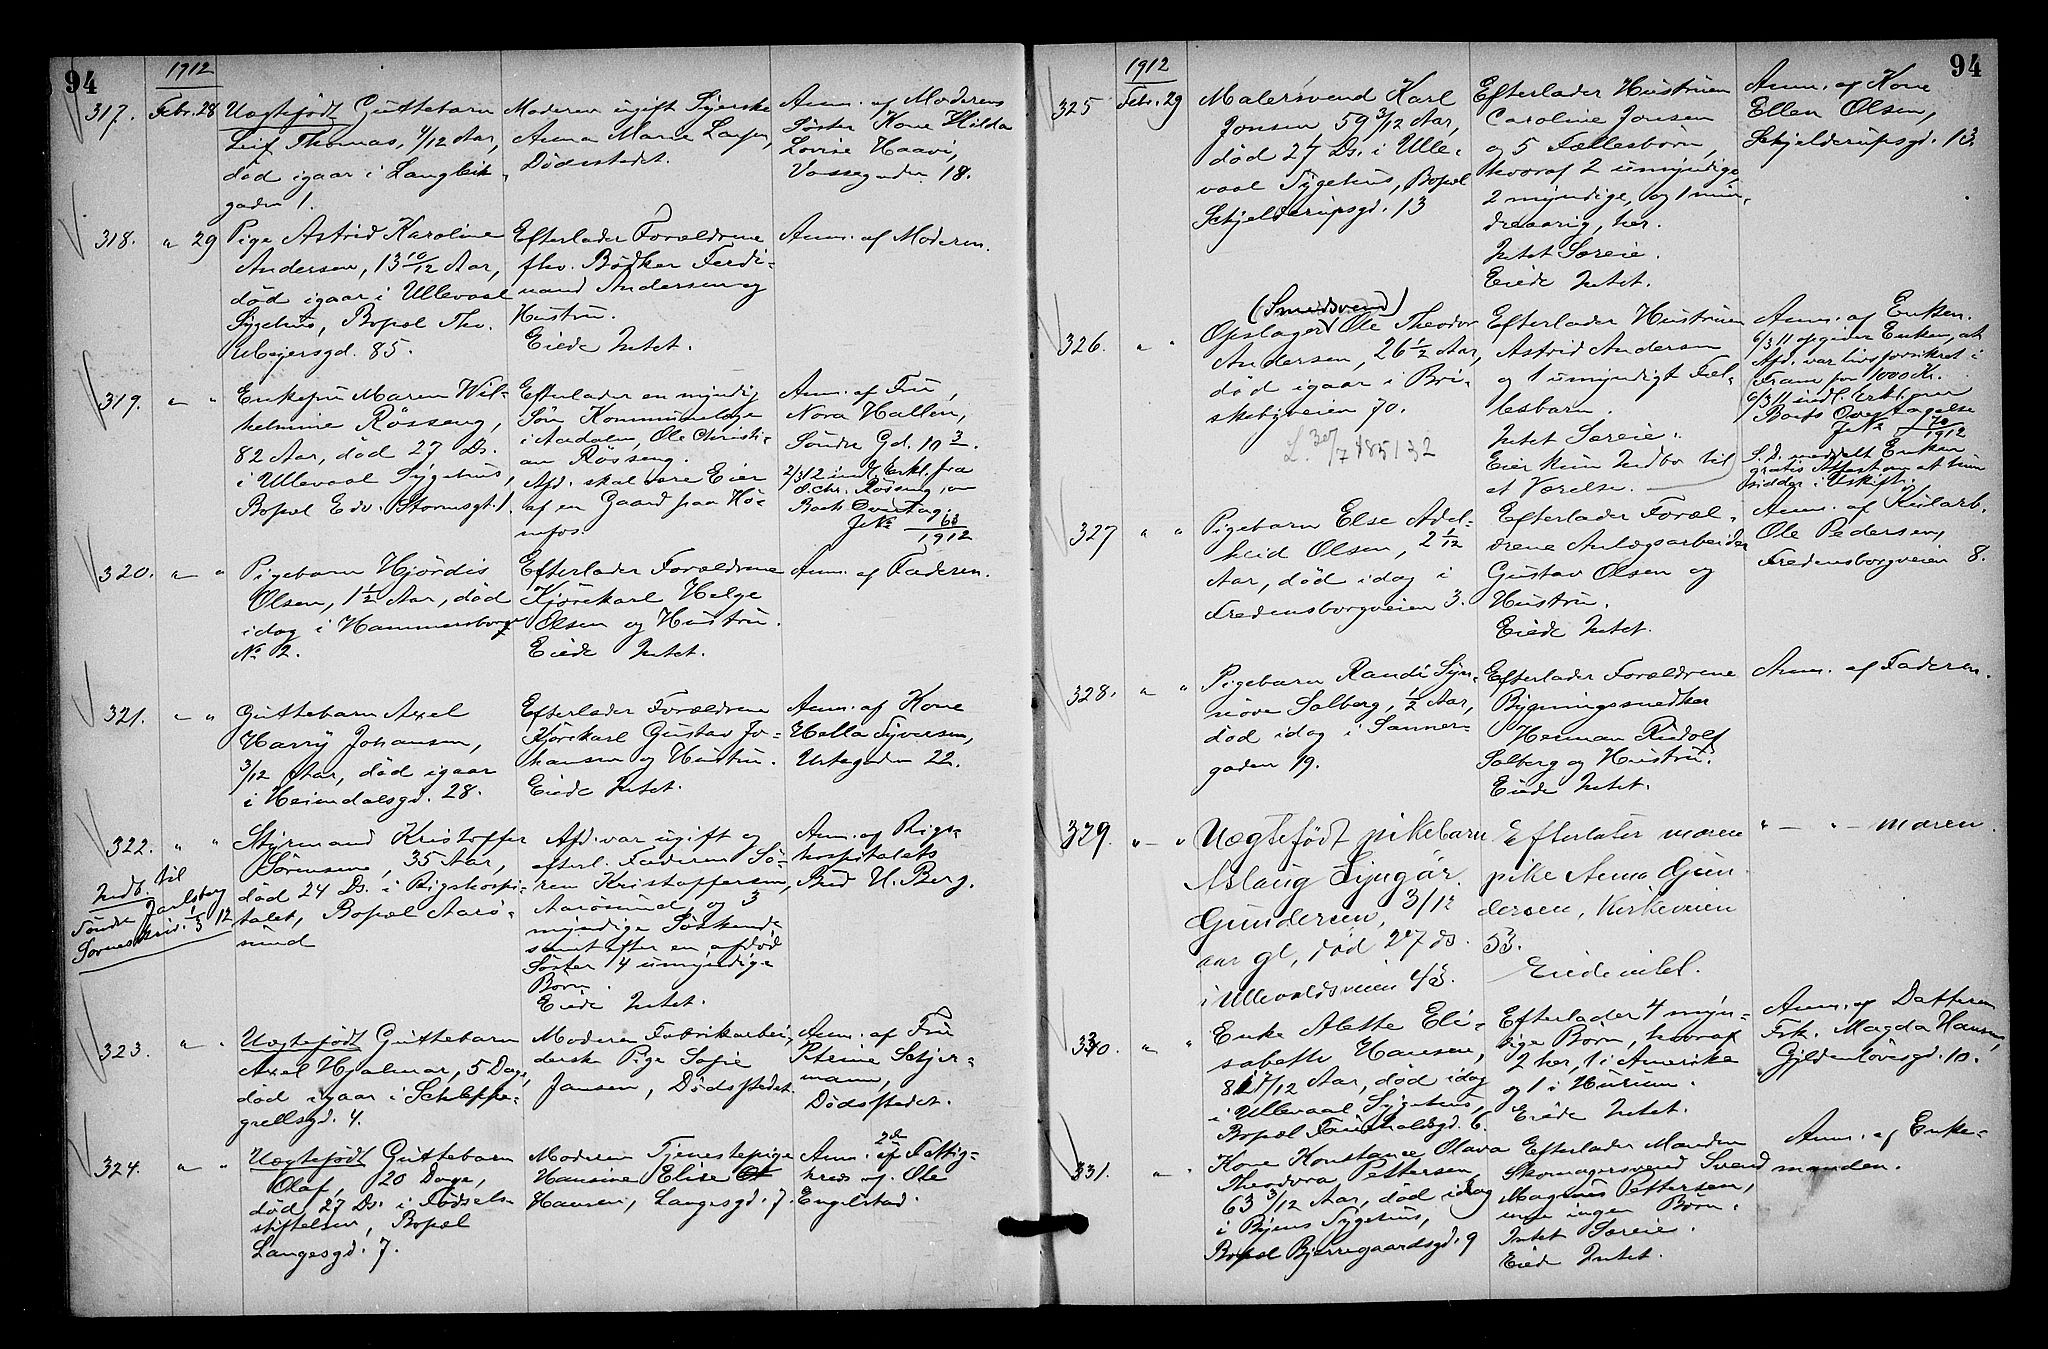 94
1912
317. Febr. 28 Uægtefødt Guttebarn
Leif Thomas, 4/12 Aar,
død igaar i Langbek
gaden 1.
Moderen ugift Syerske
Anna Marie
Dødsstedet.
Anm. af Moderens
Søster Kone Hilda
Lovise Haavi,
Vossegaden 18.
318. " 29 Pige Astrid Karoline
Andersen, 13 10/12 Aar,
død igaar i Ullevaal
Sygehus, Bopæl Thv.
Meijersgd. 85.
Efterlader Forældrene
fhv. Bødker Ferdi-
nand Andersen og
Hustru.
Eiede Intet.
Anm. af Moderen.
319. " " Enkefru Maren Wil-
helmine Røsseng,
82 Aar, død 27 Ds.
i Ullevaal Sygehus,
Bopæl Edv. Stormsgt. 1.
Efterlader en myndig
Søn Kommunelæge
i Aadalen, Ole Christi-
an Røsseng.
Afd. skal være Eier
af en Gaard paa Hø-
nefos.
Anm. af Fru
Nora Hallén,
Søndre Gd. 10 3/
2/3 12 indk. Erkl. fra
O. Chr. Røsseng, om
Boets Overtag.
JNo 63/1912
320. " " Pigebarn Hjørdis
Olsen, 1 1/2 Aar, død
idag i Hammersborg
No 2.
Efterlader Forældrene
Kjørekarl Helge
Olsen og Hustru.
Eiede Intet.
Anm. af Faderen.
321. " " Guttebarn Axel
Harry Johansen,
3/12 Aar, død igaar
i Heimdalsgd. 28.
Efterlader Forældrene
Kjørekarl Gustav Jo-
hansen og Hustru.
Eiede Intet.
Anm. af Kone
Hella Syversen,
Urtegaden 22.
322. " " Styrmand Kristoffer
Sørensen, 35 Aar,
død 24 Ds. i Rigshospi-
talet, Bopæl Aarø-
sund
Indb. til
Søndre Jarlsberg
Sorenskriv. 1/3 12
Afd. var ugift og
efterl. Faderen Sø-
ren Kristoffersen,
Aarøsund, og 3
myndige Søskende
samt efter en afdød
Søster 4 umyndige
Børn.
Eiede Intet.
Anm. af Rigs-
hospitalets
Bud H. Berg.
323. " " Uægtefødt Guttebarn
Axel Hjalmar, 5 Dage,
død igaar i Schleppe-
grellsgd. 4.
Moderen Fabrikarbei-
derske Pige Sofie
Jansen, Dødsstedet.
Anm. af Fru
Petrine Schjer-
mann,
Dødsstedet.
324. " " Uægtefødt Guttebarn
Olaf, 20 Dage,
død 27 Ds. i Fødsels
stiftelsen, Bopæl
Langesgd. 7.
Moderen Tjenestepige
Hansine Elise
Hansen, Langesgd. 7.
Anm. af 2den Fattig-
kreds v. Ole
Engelstad.
94
1912
325 Febr. 29 Malersvend Karl
Jonsen, 59 3/12 Aar,
død 27 Ds. i Ulle-
vaal Sygehus, Bopæl
Schjelderupsgd. 13
Efterlader Hustruen
Caroline Jonsen
og 5 Fællesbørn,
hvoraf 2 umyndige
2 myndige, og 1 min-
dreaarig, her.
Intet Særeie.
Eiede Intet.
Anm. af Kone
Ellen Olsen,
Schjelderupsgd. 13.
326. " " (Smedsvend)
Opslager Ole Theodor
Andersen, 26 1/2 Aar,
død igaar i Bri-
skebyveien 70.
Efterlader Hustruen
Astrid Andersen
og 1 umyndigt Fæl-
lesbarn.
Intet Særeie.
Eier kun Indbo til
et Værelse.
Anm. af Enken.
6/3 11 opgiver Enken, at
Afd. var livsforsikret i
Fram for 1000 Kr.
6/3 11 indl. Erkl. om
Boets Overtagelse
JNo 70/1912
S. D. meddelt Enken
gratis Attest om at hun
sidder i Uskifte.
327 " " Pigebarn Else Adel-
heid Olsen, 2 1/12
Aar, død idag i
Fredensborgveien 3.
Efterlader Foræl-
drene Anlægsarbeider
Gustav Olsen og
Hustru.
Eiede Intet.
Anm. af KulArb.
Ole Pedersen,
Fredensborgveien 8.
328. " " Pigebarn Randi Syn-
nøve Solberg, 1/2 Aar,
død idag i Sanner-
gaden 19.
Efterlader Forældrene
Bygningssnedker
Herman Rudolf
Solberg og Hustru.
Eiede Intet.
Anm. af Faderen.
329. " " Uægtefødt pikebarn
Aslaug Synnør
Gundersen, 3/12
aar gl, død 27 ds.
i Ullevaldsveien 43.
Efterlater moren
pike Anna Gun-
dersen, Kirkeveien
53.
Eiede intet.
" — " — moren.
330. " " Enke Alette Eli-
sabeth Hansen,
81 7/12 Aar, død idag
i Ullevaal Sygehus,
Bopæl Fauchaldsgd. 6.
Efterlader 4 myn-
dige Børn, hvoraf
2 her, 1 i Amerika
og 1 i Hurum.
Eiede Intet.
Anm. af Datteren
Frk. Magda Hansen,
Gyldenløvesgd. 10.
331. " " Kone Konstance Olava
Theodora Pettersen,
63 3/12 Aar, død idag
i Byens Sygehus,
Bopæl Bjerregaardsgd. 9
Efterlader Manden
Skomagersvend Svend
Magnus Pettersen,
men ingen Børn.
Intet Særeie.
Eiede Intet.
Anm. af Enke-
manden.